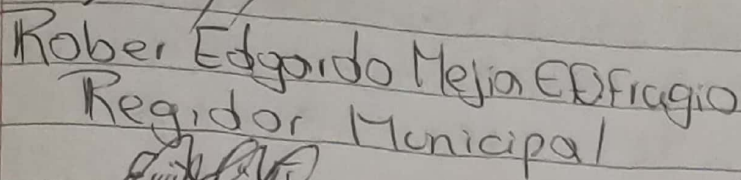 Rober Edgardo Mejia
Regidor Municipal